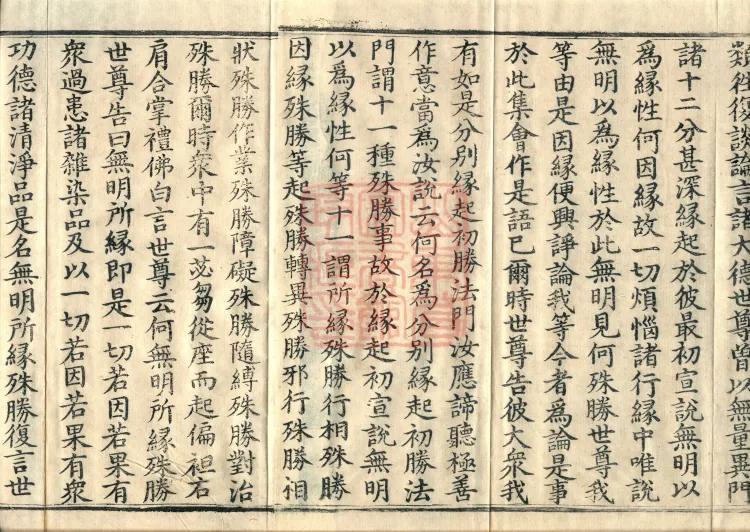 類往復談論言諸大德世尊曾以無量異門
諸十二分甚深緣起於彼最初宣說無明以
爲緣性何因緣故一切煩惱諸行緣中唯說
無明以爲緣性於此無明見何殊勝世尊我
等由是因緣便興諍論我等今者爲論是事
於此集會作是語已爾時世尊告彼大衆我
有如是分別緣起初勝法門汝應諦聽極善
作意當爲汝說云何名爲分別緣起初勝法
門謂十一種殊勝事故於緣起初宣說無明
以爲緣性何等十一謂所緣殊勝行相殊勝
因緣殊勝等起殊勝轉異殊勝邪行殊勝相
狀殊勝作業殊勝障礙殊勝隨縛殊勝對治
殊勝爾時衆中有一苾芻從座而起偏袒右
肩合掌禮佛白言世尊云何無明所緣殊勝
世尊告曰無明所緣即是一切若因若果有
衆過患諸雜染品及以一切若因若果有衆
功德諸清淨品是名無明所緣殊勝復言世